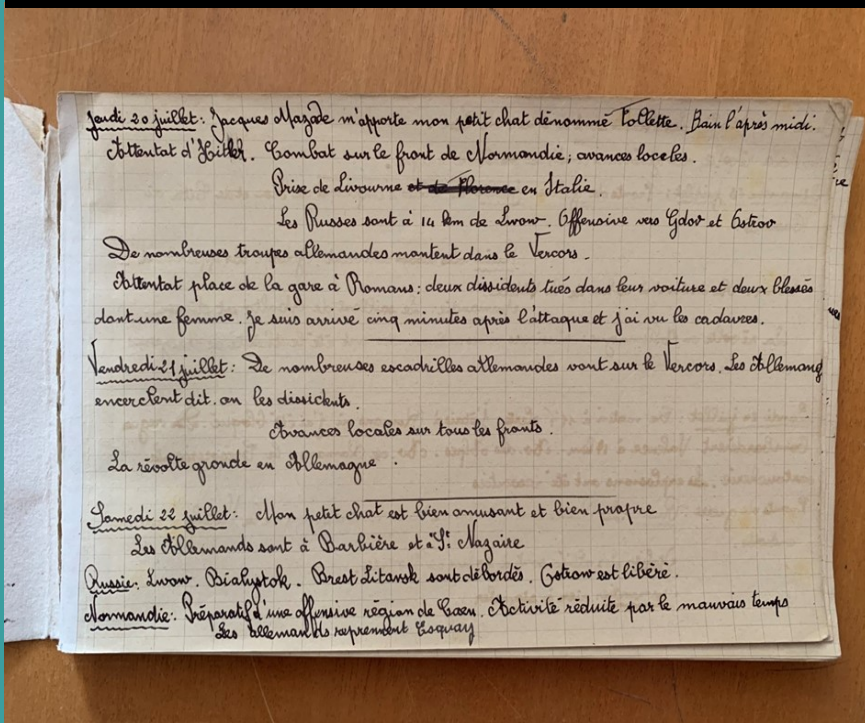 Jeudi 20 juillet : Jacques Mazade m'apporte mon petit chat dénommé Follette. Bain l'après midi.
Attentat d'Hitler. Combat sur le front de Normandie ; avances locales.
Prise de Livourne et de Florence en Italie.
Les Russes sont à 14 km de Lwow. Offensive vers Gdov et Ostrov
De nombreuses troupes allemandes montent dans le Vercors.
Attentat place de la gare à Romans : deux dissidents tués dans leur voiture et deux blessés
dont une femme. Je suis arrivé cinq minutes après l'attaque et j'ai vu les cadavres.
Vendredi 21 juillet : De nombreuses escadrilles allemandes vont sur le Vercors. Les Allemand
encerclent dit. on les dissidents.
Avances locales sur tous les fronts.
La révolte gronde en Allemagne.
Samedi 22 juillet : Mon petit chat est bien amusant et bien propre
Les Allemands sont à Barbière et à St Nazaire
Russie. Lwow. Bialystok. Brest Litowsk sont débordés. Ostrow est libéré.
Normandie : Préparatif d'une offensive région de Caen. Activité réduite par le mauvais temps
Les allemands reprennent Esquay